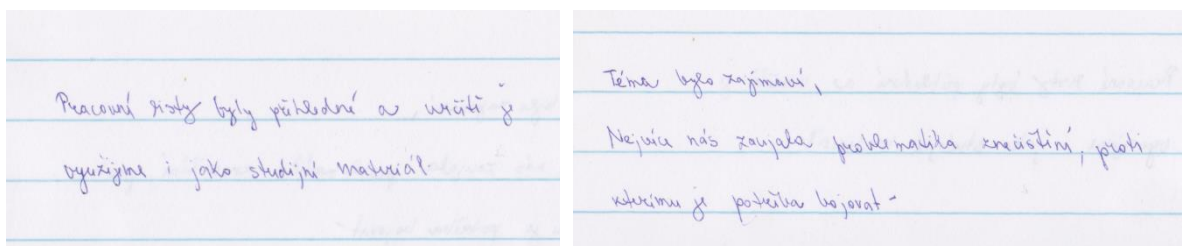 Pracovní listy byly přehledné a určitě je
využijeme i jako studijní materiál.
Téma bylo zajímavé,
Nejvíce nás zaujala problematika znečištění, proti
kterému je potřeba bojovat.